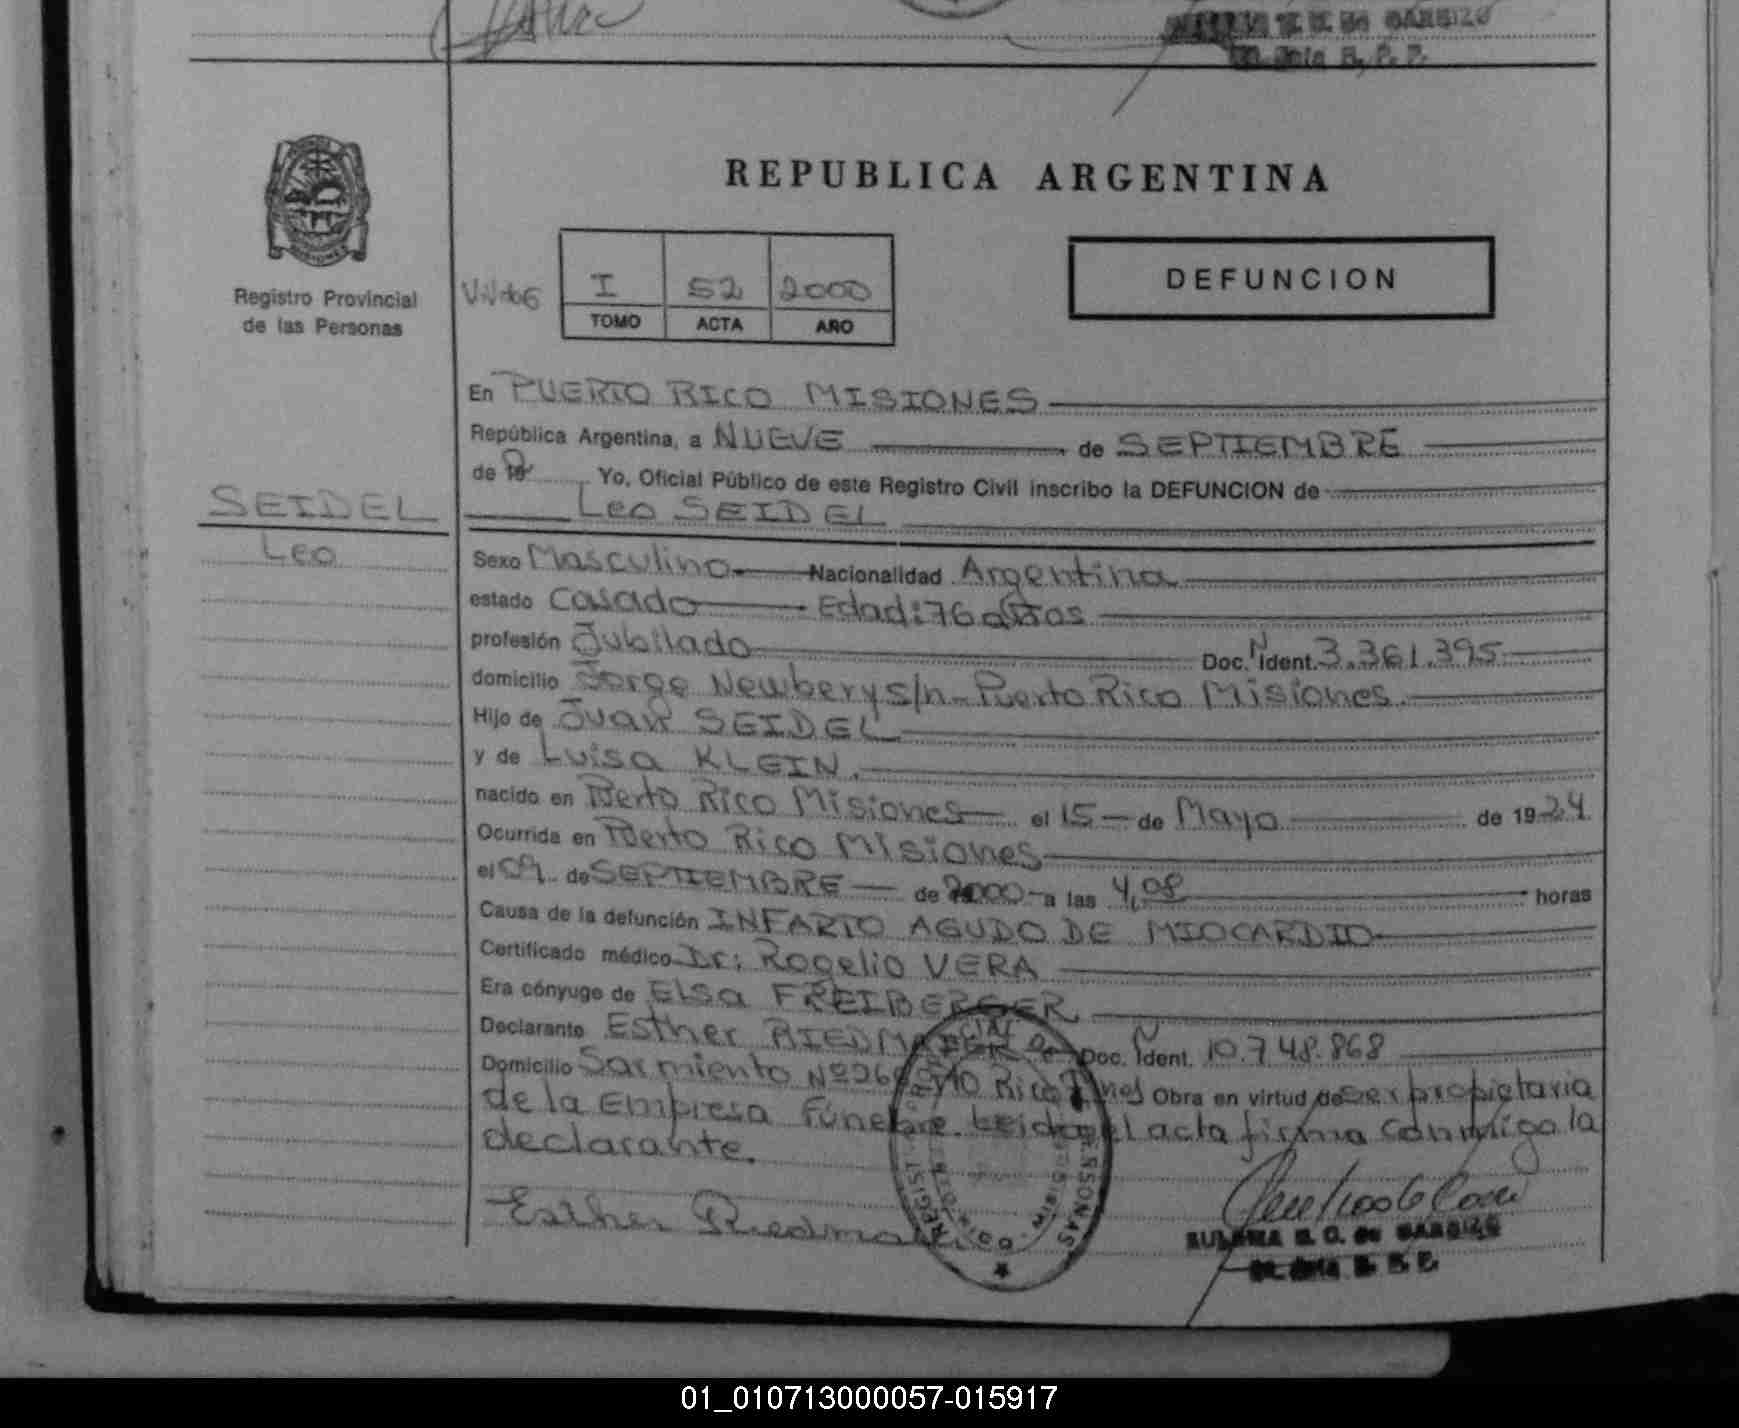 DE GARBIZO
REPUBLICA ARGENTINA
MISIONES
Registro Provincial
de las Personas
I 52 2000
TOMO ACTA AÑO
DEFUNCION
En PUERTO RICO MISIONES
República Argentina, a NUEVE de SEPTIEMBRE
de 19 Yo, Oficial Público de este Registro Civil inscribo la DEFUNCION de
SEIDEL
Leo SEIDEL
Leo
Sexo Masculino Nacionalidad Argentina
estado Casado Edad: 76 años
profesión Jubilado Doc. N Ident. 3.361.395
domicilio Jorge Newbery s/n - Puerto Rico Misiones.
Hijo de Juan SEIDEL
y de Luisa KLEIN.
nacido en Pverto Rico Misiones el 15 de Mayo de 1924
Ocurrida en Pverto Rico Misiones
el 09 de SEPTIEMBRE de 2000 a las 4,08 horas
Causa de la defunción INFARTO AGUDO DE MIOCARDIO
Certificado médico Dr: Rogelio VERA
Era cónyuge de Elsa FREIBERGER
Declarante Esther RIEDMAIER Doc. N Ident. 10.748.868
Domicilio Sarmiento Nº Rico Obra en virtud de ser propietaria
de la Empresa Fúnebre. Leida el acta firma conmigo la
declarante.
Esther
REGIST PERSONAS
DE GARBIZO
01_010713000057-015917